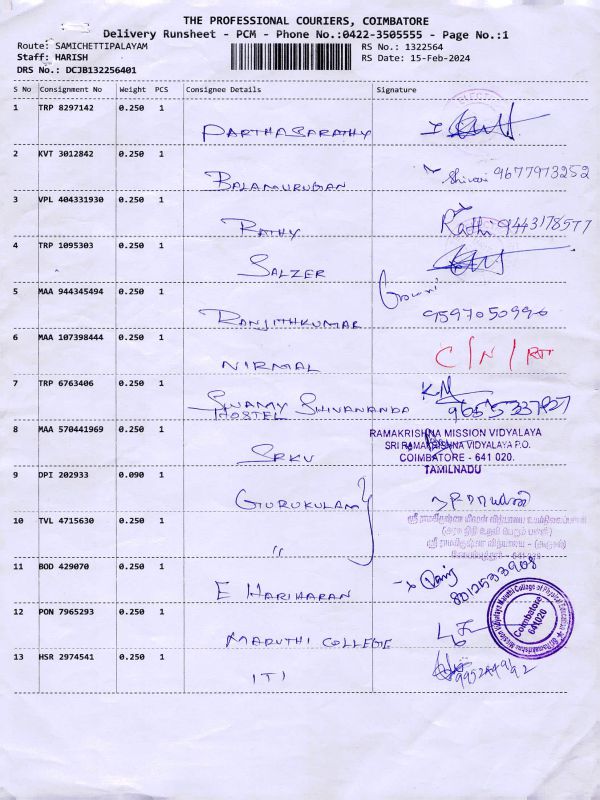 THE PROFESSIONAL COURIERS, COIMBATORE
Delivery Runsheet - PCM - Phone No.:0422-3505555 - Page No.:1
Route: SAMICHETTIPALAYAM
Staff: HARISH
DRS No.: DCJB132256401
RS No.: 1322564
RS Date: 15-Feb-2024
S No Consignment No Weight PCS Consignee Details Signature
1 TRP 8297142 0.250 1
PARTHASARATHY
2 KVT 3012842 0.250 1
BALAMURUGAN 9677973252
3 VPL 404331930 0.250 1
RATHY Rathi 9443178577
4 TRP 1095303 0.250 1
SALZER
5 MAA 944345494 0.250 1
RANJITHKUMAR 9597050996
6 MAA 107398444 0.250 1
NIRMAL C/N/RTT
7 TRP 6763406 0.250 1
SWAMY SHIVANANDA
HOSTEL
8 MAA 570441969 0.250 1
RAMAKRISHNA MISSION VIDYALAYA
SRI RAMAKRISHNA VIDYALAYA P.O.
COIMBATORE - 641 020.
TAMILNADU
SRKV
9 DPI 202933 0.090 1
GURUKULAM
10 TVL 4715630 0.250 1
"
11 BOD 429070 0.250 1
E HARIHARAN 8012533908
12 PON 7965293 0.250 1
MARUTHI COLLEGE
Maruthi College of Physical Education
Coimbatore
641020
13 HSR 2974541 0.250 1
ITI